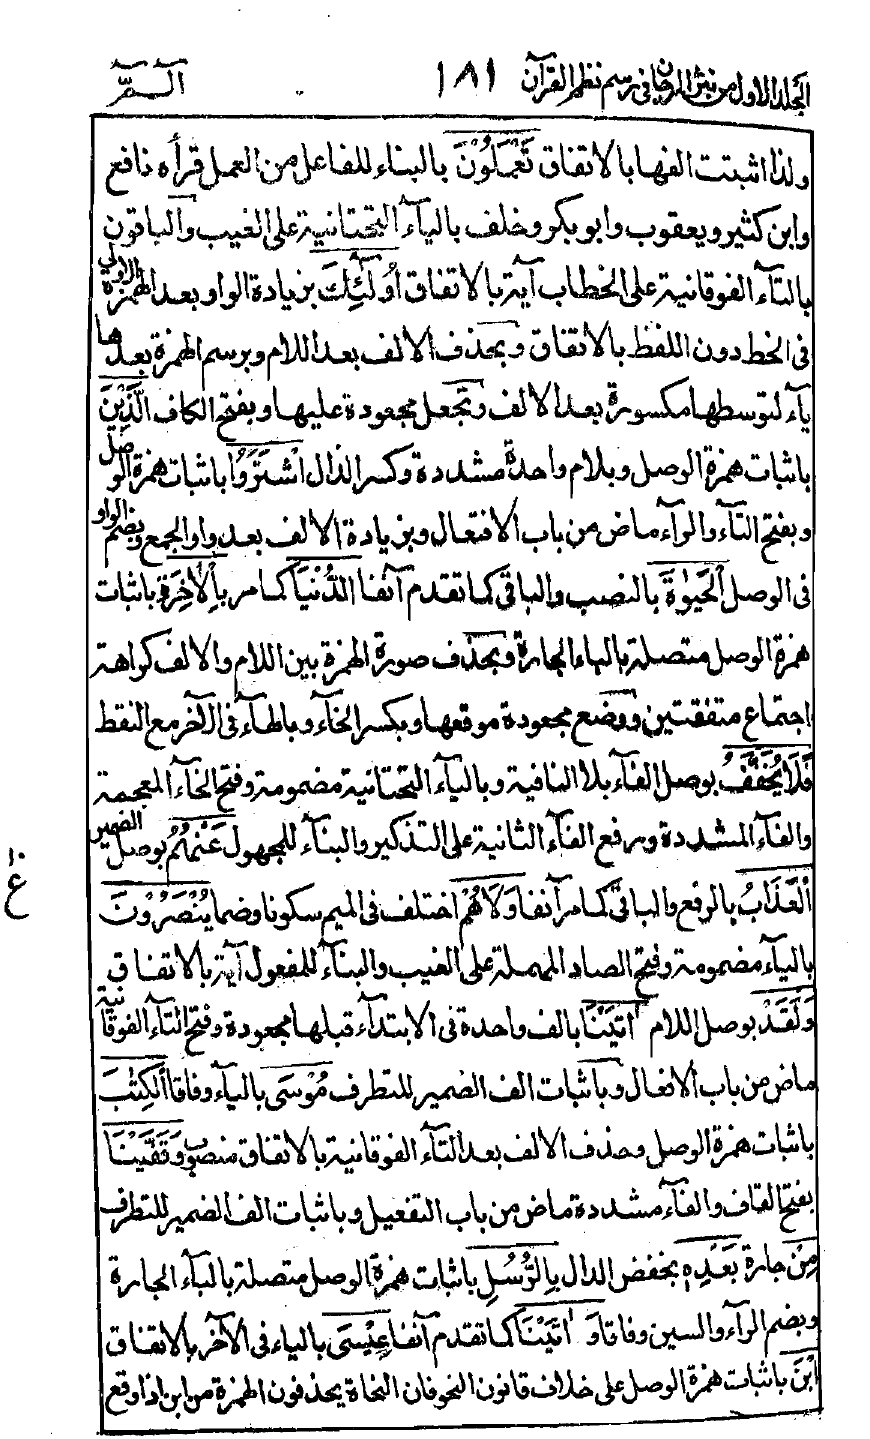 المجلد الاول من نثر المرجان فى رسم نظم القرآن ١٨١ السمّ
ولذا اثبتت الفها بالاتفاق تَعْمَلُوْنَ بالبناء للفاعل من العمل قرأه نافع
وابن كثير ويعقوب وابو بكر وخلف بالياء التحتانية على الغيب والباقون
بالتاء الفوقانية على الخطاب آية بالاتفاق اُولٰٓئِكَ بزيادة الواو بعد الهمزة الاولى
فى الخط دون اللفظ بالاتفاق وبحذف الالف بعد اللام وبرسم الهمزة بعدها
ياء لتوسطها مكسورة بعد الالف وتجعل مجعودة عليها وبفتح الكاف الَّذِيْنَ
باثبات همزة الوصل وبلام واحدة مشددة وكسر الذال اشْتَرَوُا باثبات همزة الوصل
وبفتح التاء والراء ماض من باب الافتعال وبزيادة الالف بعد واو الجمع وبضم الواو
فى الوصل الْحَيٰوةَ بالنصب والباقى كما تقدم آنفا الدُّنْيَا كما مر بِالْاٰخِرَةِ باثبات
همزة الوصل متصلة بالباء الجارة وبحذف صورة الهمزة بين اللام والالف كراهة
اجتماع متفقتين ووضع مجعودة موقعها وبكسر الخاء وبالهاء فى الآخر مع النقط
فَلَا يُخَفَّفُ بوصل الفاء بلا النافية وبالياء التحتانية مضمومة وفتح الخاء المعجمة
والفاء المشددة ورفع الفاء الثانية على التذكير والبناء للمجهول عَنْهُمُ بوصل الضمير
الْعَذَابُ بالرفع والباقى كما مر آنفا وَلَا هُمْ اختلف فى الميم سكونا وضما يُنْصَرُوْنَ
بالياء مضمومة وفتح الصاد المهملة على الغيب والبناء للمفعول آية بالاتفاق
وَلَقَدْ بوصل اللام اٰتَيْنَا بالف واحدة فى الابتداء قبلها مجعودة وفتح التاء الفوقانية
ماض من باب الافعال وباثبات الف الضمير للتطرف مُوْسَى بالياء وفاقا الْكِتٰبَ
باثبات همزة الوصل وحذف الالف بعد التاء الفوقانية بالاتفاق منصوب وَقَفَّيْنَا
بفتح القاف والفاء مشددة ماض من باب التفعيل وباثبات الف الضمير للتطرف
مِنْ جارة بَعْدِهٖ بخفض الدال بِالرُّسُلِ باثبات همزة الوصل متصلة بالباء الجارة
وبضم الراء والسين وفاقا وَاٰتَيْنَا كما تقدم آنفا عِيْسَى بالياء فى الآخر بالاتفاق
ابْنَ باثبات همزة الوصل على خلاف قانون النحو فان النحاة يحذفون الهمزة من ابن اذا وقع
١٠
ع